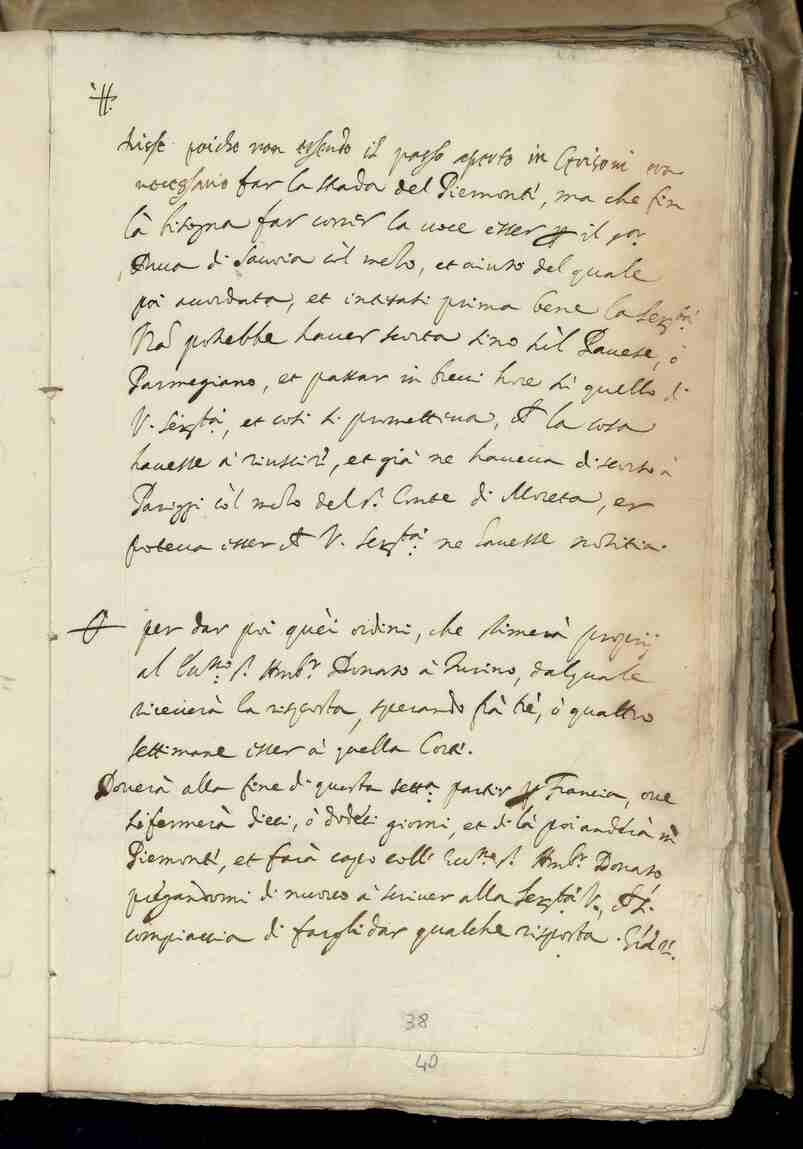 #.
disse poiche non essendo il passo aperto in Grisoni era
necessario far la strada del Piemonte, ma che sin
là bisogna far correr la uoce esser il
Duca di Sauoia col mezo, et aiuto del quale
poi accordata, et intesasi prima bene la Ser.tà
potrebbe hauer scorta sino sul Pauese, ò
Parmegiano, et passar in breui hore su quello di
V. Ser.tà, et cosi si prometteua, la cosa
hauesse à riuscire, et già ne haueua discorso à
Pariggi col mezo del S.r Conte di Moreta, et
poteua esser V. Ser.tà ne hauesse notitia.
per dar poi quei ordini, che stimerà proprij
al S.r Amb.r Donato à Turino, dal quale
riceuerà la risposta, sperando frà trè, ò quattro
settimane esser à quella Corte.
Douerà alla fine di questa sett.a partir Francia, oue
si fermerà dieci, ò dodeci giorni, et di là poi anderà in
Piemonte, et farà capo coll' Ecc.mo S.r Amb.r Donato,
pregandomi di nuouo à scriuer alla Ser.tà V.,
compiaccia di fargli dar qualche risposta.
38
40